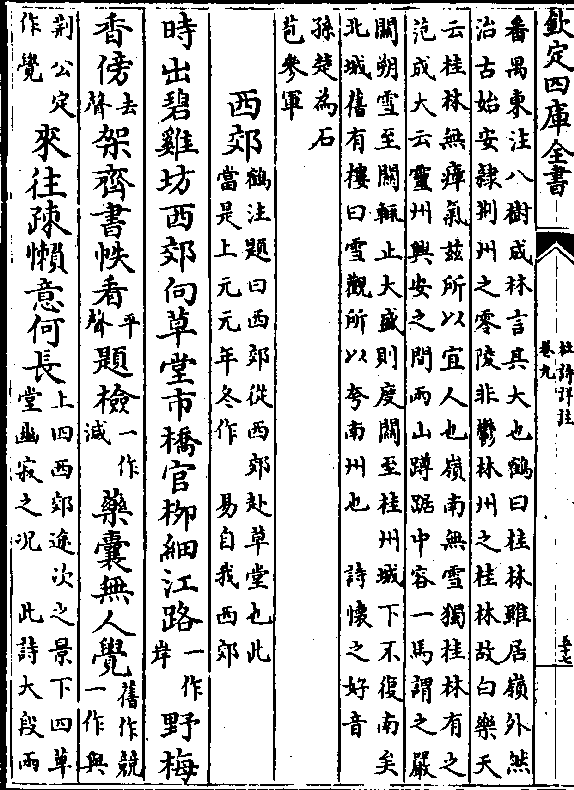 欽定四庫全書
杜詩詳註
卷九
五十七
番禺東注八樹成林言其大也鶴曰桂林雖居嶺外然
治古始安隷荆州之零陵非鬱林州之桂林故白樂天
云桂林無瘴氣兹所以宜人也嶺南無雪獨桂林有之
范成大云靈州興安之間兩山蹲踞中容一馬謂之嚴
關朔雪至關輒止大盛則度關至桂州城下不復南矣
北城舊有樓曰雪觀所以夸南州也　詩懷之好音
孫楚為石
苞參軍
西郊鶴注題曰西郊從西郊赴草堂也此當是上元元年冬作　易自我西郊
時出碧雞坊西郊向草堂市橋官柳細江路一作岸野梅
香傍去聲架齊書帙看平聲題檢一作減藥囊無人覺舊作競一作與
荆公定作覺來往疎懶意何長上四西郊途次之景下四草堂幽寂之况　此詩大段兩